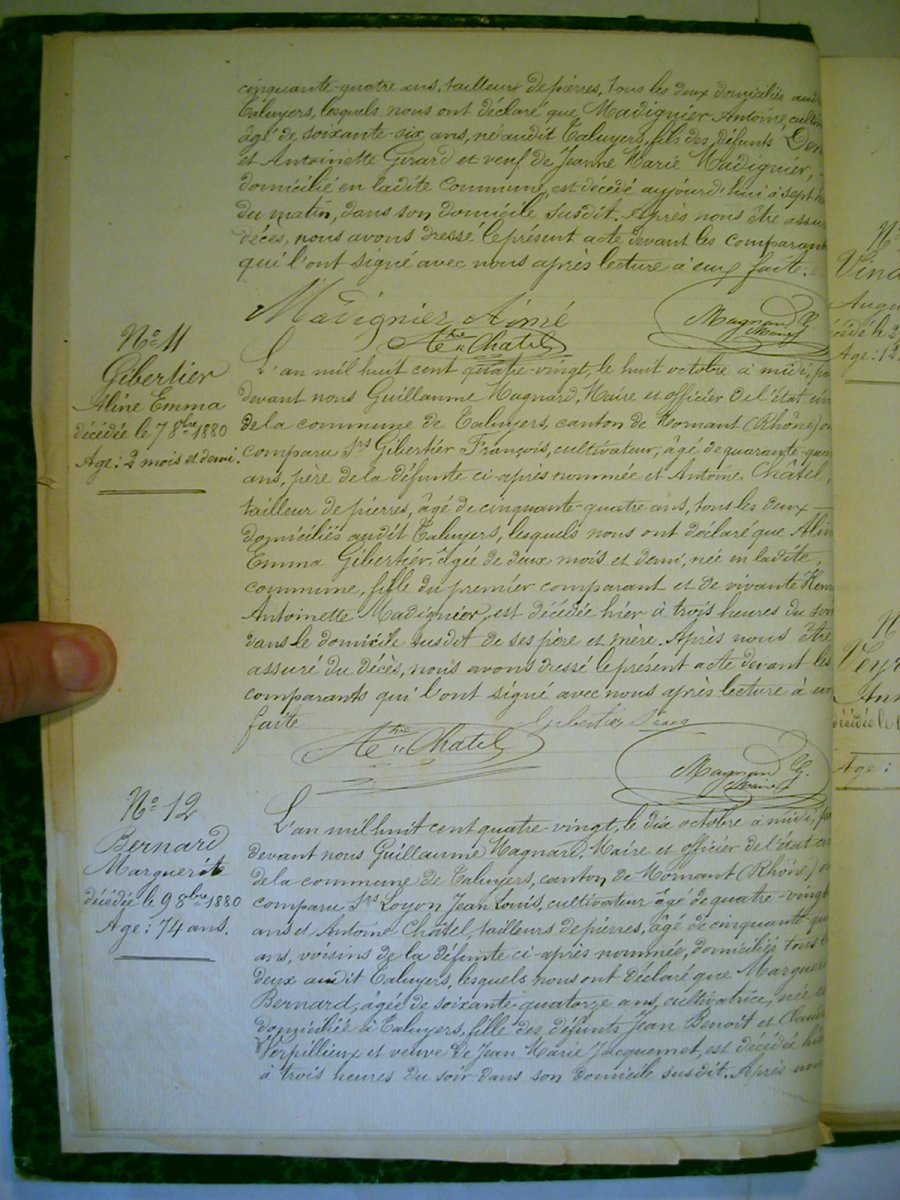 cinquante-quatre ans, tailleur de pierres, tous les deux domiciliés aud
Taluyers, lesquels nous ont déclaré que Madignier Antoine, cultiv
âgé de soixante-six ans, né audit Taluyers, fils des défunts
et Antoinette Girard et veuf de Jeanne Marie Madignier,
domicilié en ladite Commune, est décédé aujourd'hui à sept h
du matin, dans son domicile susdit. Après nous être assu
décès, nous avons dressé le présent acte devant les comparant
qui l'ont signé avec nous après lecture à eux faite.
Madignier Aimé
Ate Chatel
Magnard G.
Maire
No 11
Gibertier
Aline Emma
décédée le 7 8bre 1880
Age: 2 mois et demi.
L'an mil huit cent quatre-vingt, le huit octobre à midi, par
devant nous Guillaume Magnard, Maire et officier de l'état civ
de la commune de Taluyers, canton de Mornant (Rhône) on
comparu Srs Gibertier François, cultivateur, âgé de quarante-qua
ans, père de la défunte ci-après nommée et Antoine Châtel,
tailleur de pierres, âgé de cinquante-quatre ans, tous les deux
domiciliés audit Taluyers, lesquels nous ont déclaré que Alin
Emma Gibertier, âgée de deux mois et demi, née en ladite
commune, fille du premier comparant et de vivante Henri
Antoinette Madignier, est décédée hier à trois heures du soir
dans le domicile susdit de ses père et mère. Après nous être
assuré du décès, nous avons dressé le présent acte devant les
comparants qui l'ont signé avec nous après lecture à eux
faite
Gibertier
Ate Chatel
Magnard G.
Maire
No 12
Bernard
Marguerite
décédée le 9 8bre 1880
Age: 74 ans.
L'an mil huit cent quatre-vingt, le dix octobre à midi, par
devant nous Guillaume Magnard, Maire et officier de l'état civ
de la commune de Taluyers, canton de Mornant (Rhône) on
comparu Srs Loyon Jean Louis, cultivateur âgé de quatre-vingt
ans et Antoine Châtel, tailleurs de pierres, âgé de cinquante-qua
ans, voisins de la défunte ci-après nommée, domiciliés tous l
deux audit Taluyers, lesquels nous ont déclaré que Margueri
Bernard, agée de soixante-quatorze ans, cultivatrice, née e
domiciliée à Taluyers, fille des défunts Jean Benoit et Claudi
Vorpillieux et veuve de Jean Marie Jacquemet, est décédée hie
à trois heures du soir dans son domicile susdit. Après nous
No
Vinc
Augu
cédé le 2
Age: 12
N
Veyr
Ann
décédée le
Age: